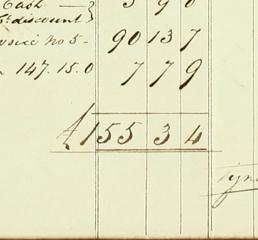 Cash —
discount
No 5 - 90 13 7
147.15.0 7 7 9
£155 3 4